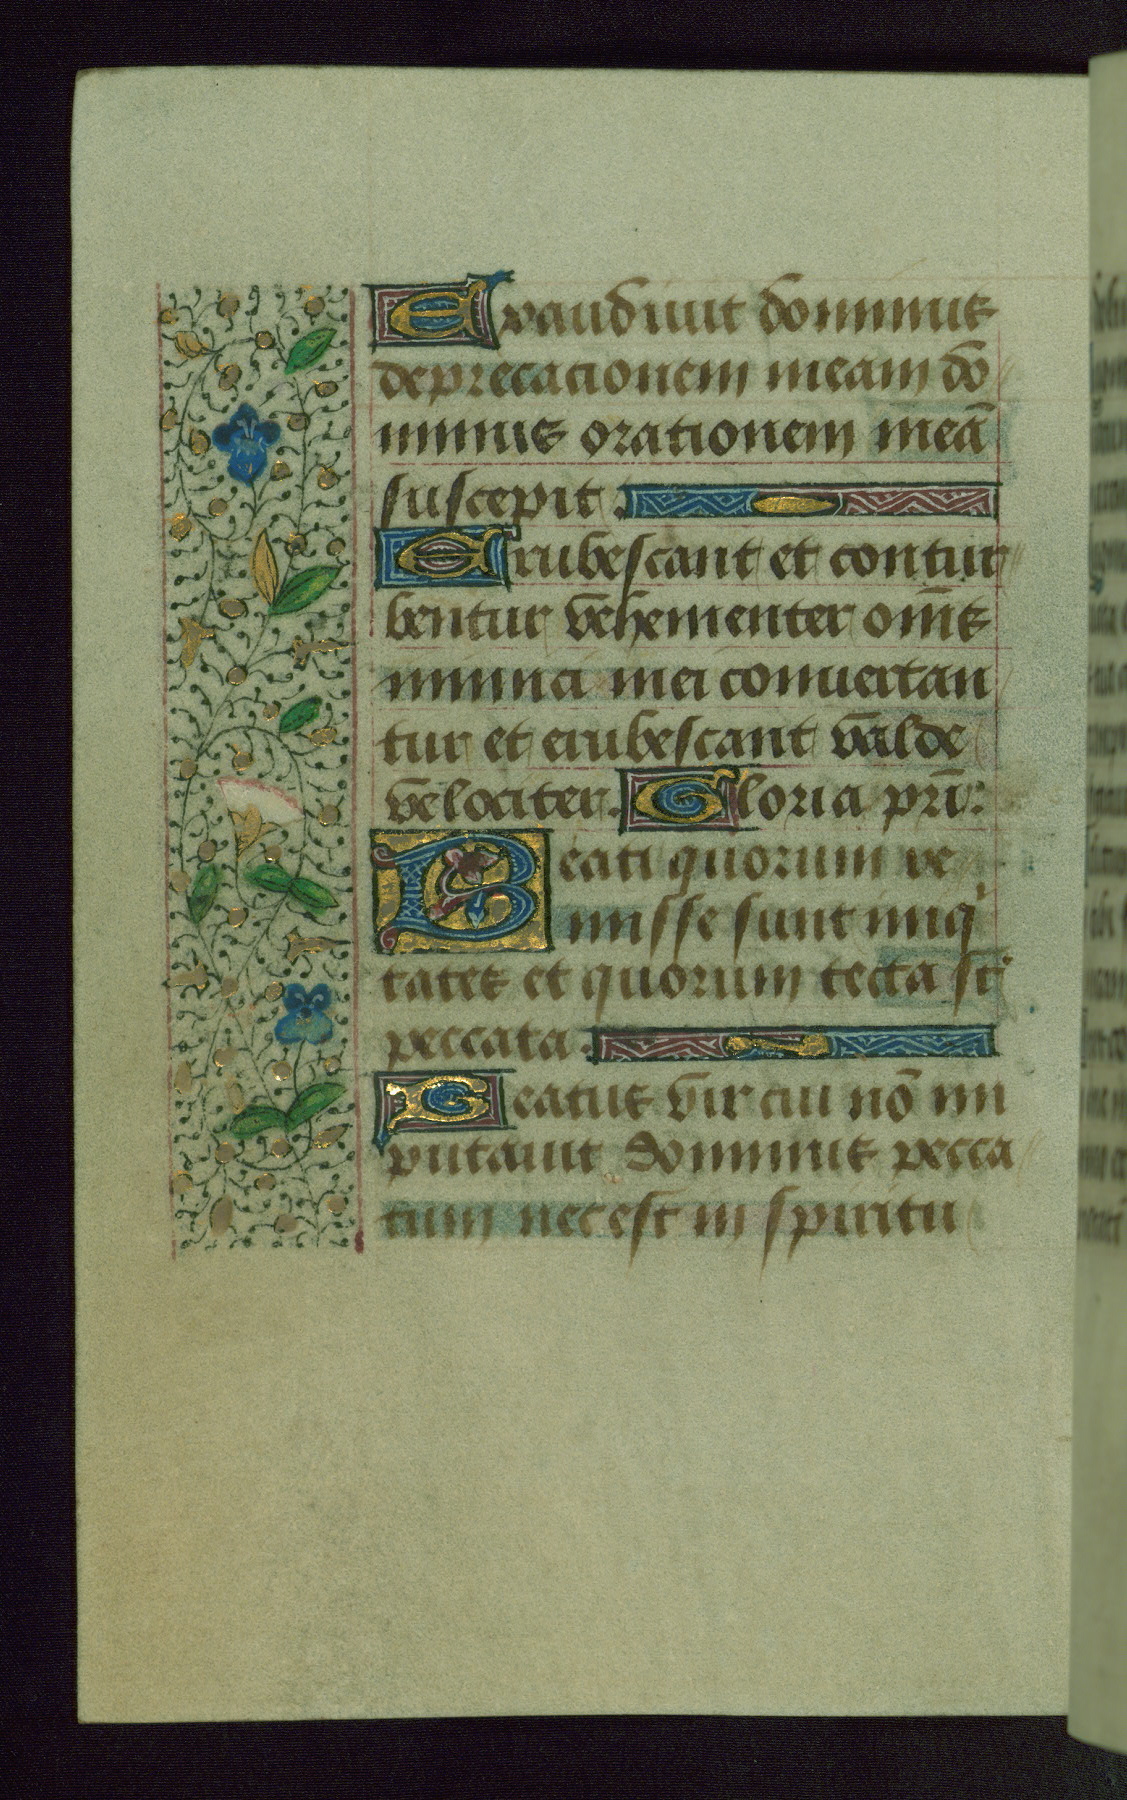 Exaudivit dominus
deprecationem meam do
minus orationem meā
suscepit.
Erubescant et contur
bentur vehementer om̄s
inimici mei convertan
tur et erubescant valde
velociter. Gloria pr̄i:
Beati quorum re
misse sunt iniq
tates et quorum tecta st
peccata.
Beatus vir cui nō im
putavit dominus pecca
tum nec est in spiritu